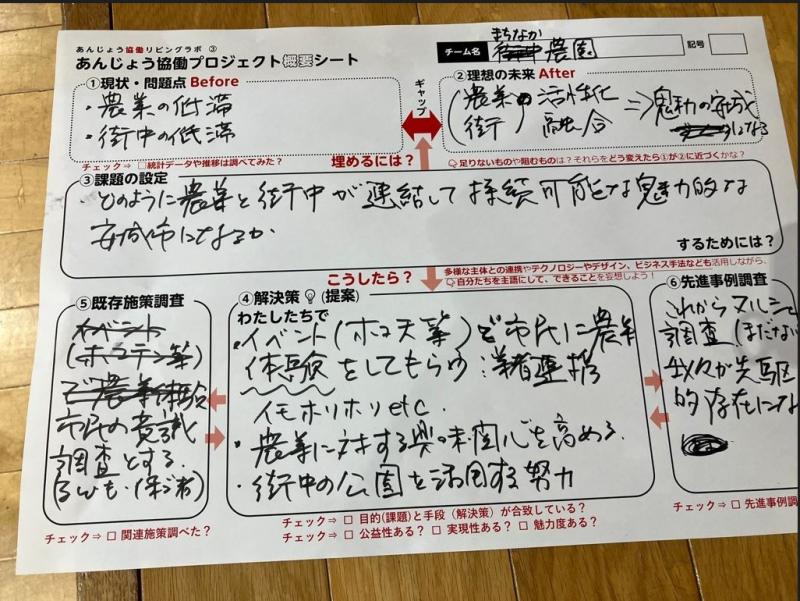 あんじょう協働リビングラボ ③
あんじょう協働プロジェクト概要シート
チーム名
まちなか
農園
記号
①現状・問題点 Before
・農業の低滞
・街中の低滞
チェック⇒ □統計データや推移は調べてみた？
ギャップ
②理想の未来 After
農業 活性化
街 融合 ⇒魅力の安城
にする
埋めるには？
足りないものや阻むものは？それらをどう変えたら①が②に近づくかな？
③課題の設定
・どのように農業と街中が連結して持続可能な魅力的な
安城市になるか
するためには？
こうしたら？
多様な主体との連携やテクノロジーやデザイン、ビジネス手法なども活用しながら、
自分たちを主語にして、できることを妄想しよう！
⑤既存施策調査
イベント
(ホコテン等)
で農業体験
市民の意識
調査とする
チェック⇒ □ 関連施策調べた？
④解決策 (提案)
わたしたちで
・イベント(ホコ天等)で市民に農業
体験をしてもらう
イモホリホリetc.
・農業に対する興味関心を高める.
・街中の公園を活用する努力
チェック⇒ □ 目的(課題)と手段（解決策）が合致している？
チェック⇒ □ 公益性ある？ □ 実現性ある？ □ 魅力度ある？
⑥先進事例調査
これからマルシェ
調査(まだない
我々が先駆
的存在にな
チェック⇒ □ 先進事例調